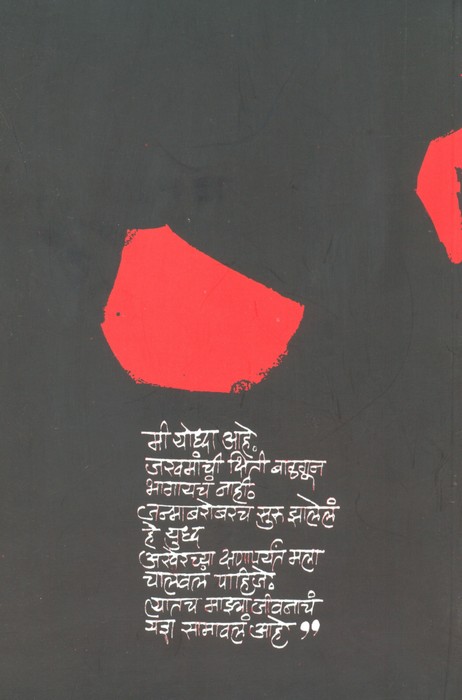 मी योध्दा आहे.
जखमांची भिती बाळगून
भागायचं नाही.
जन्माबरोबरच सुरू झालेलं
हे युध्द
अखेरच्या क्षणापर्यंत मला
चालवलं पाहिजे.
त्यातच माझ्या जीवनाचं
यश सामावलं आहे ”